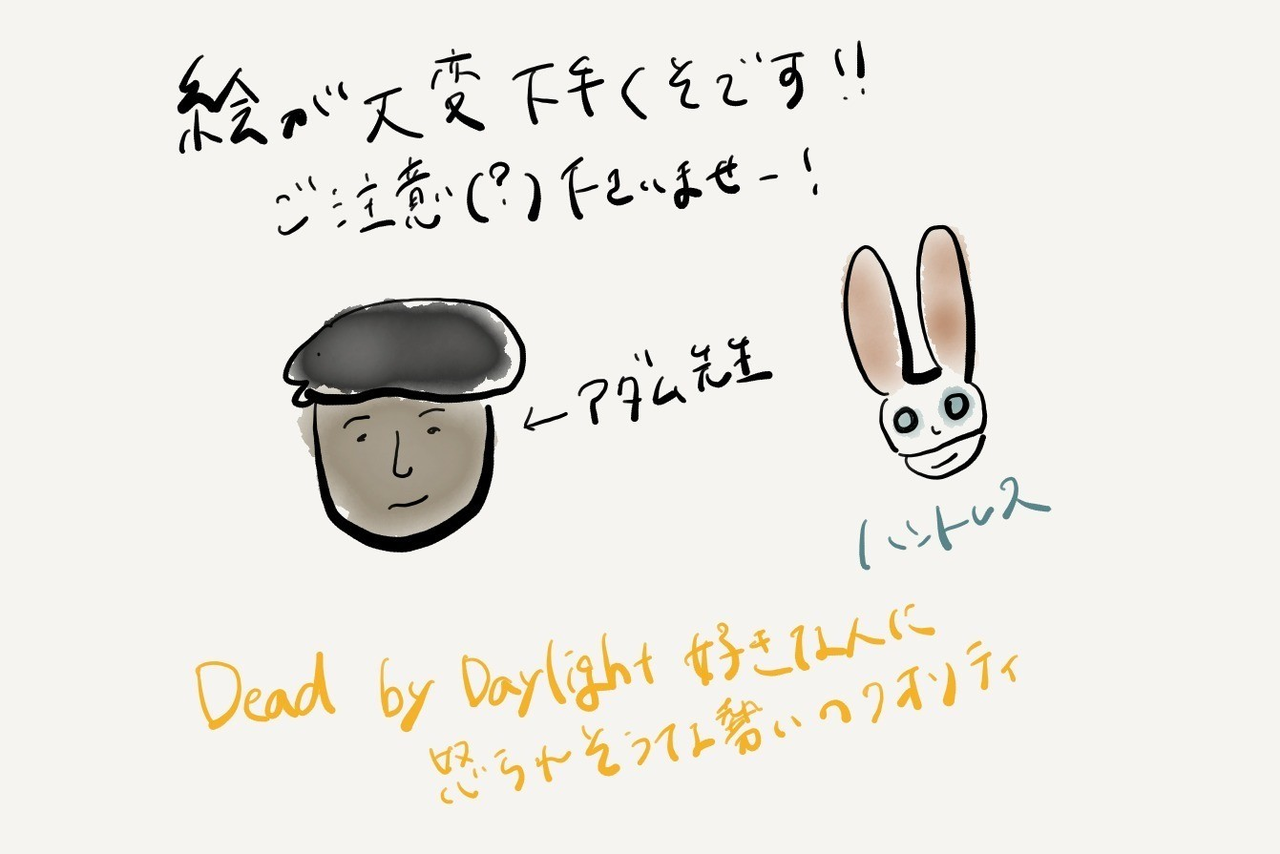 絵が大変下手くそです!!
ご注意(?)下さいませー!
←アダム先生
ハントレス
Dead by Daylight 好きな人に
怒られそうな勢いのクオリティ